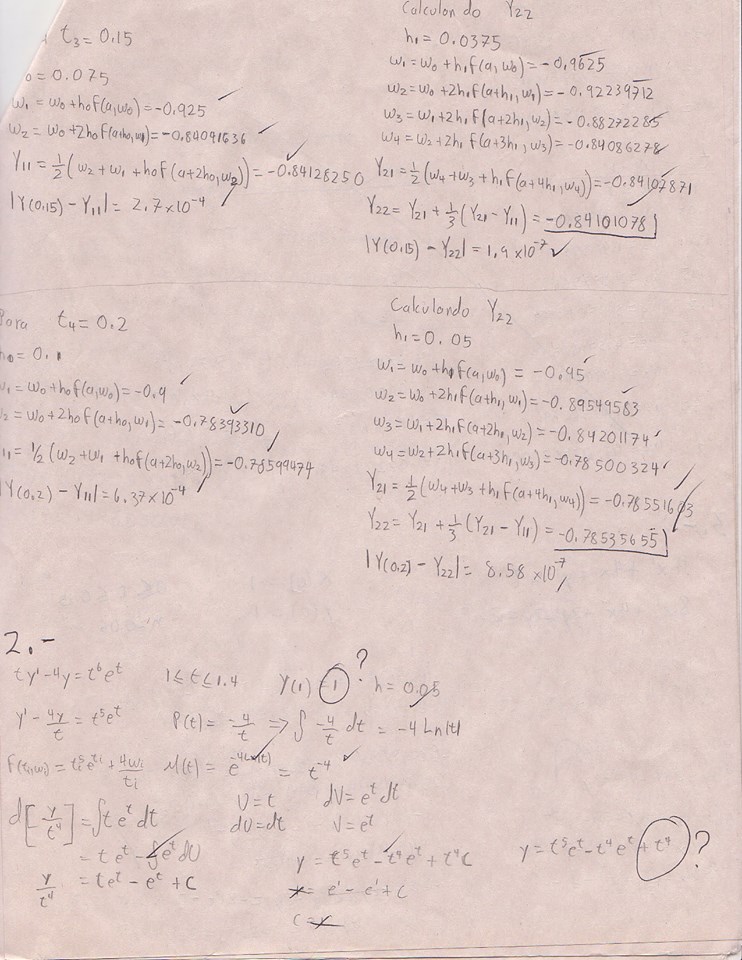 t₃ = 0.15
₀ = 0.075
w₁ = w₀ + h₀f(a,w₀) = -0.925
w₂ = w₀ + 2h₀f(a+h₀,w₁) = -0.84091636
Y₁₁ = ½(w₂ + w₁ + h₀f(a+2h₀,w₂)) = -0.84128250
|Y(0.15) - Y₁₁| = 2.7x10⁻⁴
Calculando Y₂₂
h₁ = 0.0375
w₁ = w₀ + h₁f(a,w₀) = -0.9625
w₂ = w₀ + 2h₁f(a+h₁,w₁) = -0.92239712
w₃ = w₁ + 2h₁f(a+2h₁,w₂) = -0.88272285
w₄ = w₂ + 2h₁f(a+3h₁,w₃) = -0.84086278
Y₂₁ = ½(w₄ + w₃ + h₁f(a+4h₁,w₄)) = -0.84107871
Y₂₂ = Y₂₁ + ⅓(Y₂₁ - Y₁₁) = -0.84101078
|Y(0.15) - Y₂₂| = 1.9x10⁻⁷
Para t₄ = 0.2
h₀ = 0.1
w₁ = w₀ + h₀f(a,w₀) = -0.9
₂ = w₀ + 2h₀f(a+h₀,w₁) = -0.78393310
₁₁ = ½(w₂ + w₁ + h₀f(a+2h₀,w₂)) = -0.78599474
|Y(0.2) - Y₁₁| = 6.37x10⁻⁴
Calculando Y₂₂
h₁ = 0.05
w₁ = w₀ + h₁f(a,w₀) = -0.95
w₂ = w₀ + 2h₁f(a+h₁,w₁) = -0.89549583
w₃ = w₁ + 2h₁f(a+2h₁,w₂) = -0.84201174
w₄ = w₂ + 2h₁f(a+3h₁,w₃) = -0.78500324
Y₂₁ = ½(w₄ + w₃ + h₁f(a+4h₁,w₄)) = -0.78551603
Y₂₂ = Y₂₁ + ⅓(Y₂₁ - Y₁₁) = -0.78535655
|Y(0.2) - Y₂₂| = 8.58x10⁻⁷
2.-
ty' - 4y = t⁶eᵗ 1 ≤ t ≤ 1.4 Y(1) = 1 ? h = 0.05
y' - 4y/t = t⁵eᵗ P(t) = -4/t ⇒ ∫ -4/t dt = -4Ln|t|
F(tᵢ,wᵢ) = tᵢ⁵eᵗⁱ + 4wᵢ/tᵢ μ(t) = e^(-4Ln(t)) = t⁻⁴
d[y/t⁴] = ∫teᵗdt U = t dV = eᵗdt
dU = dt V = eᵗ
= teᵗ - ∫eᵗdU
y/t⁴ = teᵗ - eᵗ + C
y = t⁵eᵗ - t⁴eᵗ + t⁴C
= e¹ - e¹ + C
C =
y = t⁵eᵗ - t⁴eᵗ + t⁴ ?